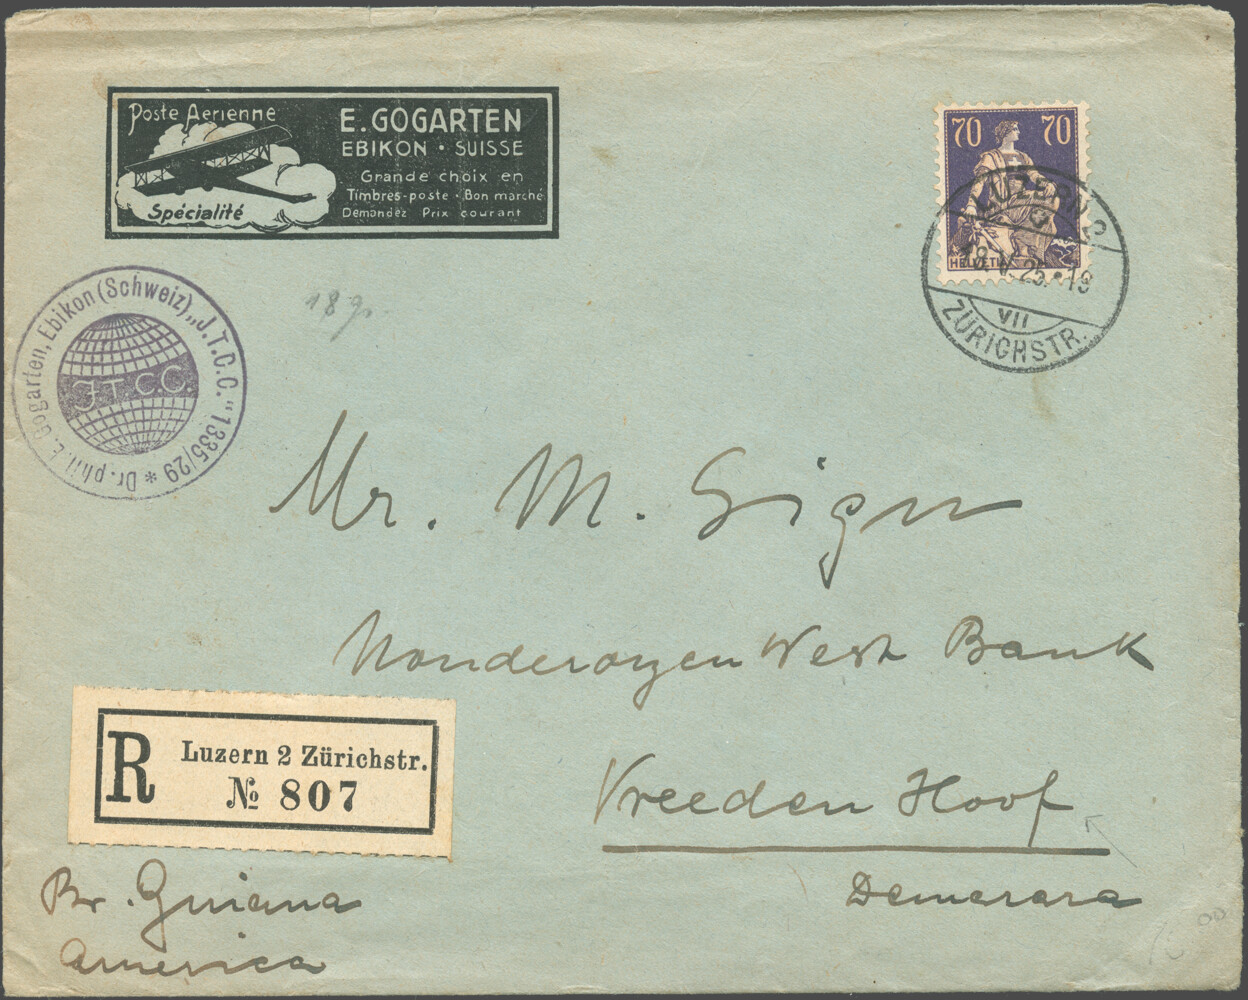 Poste Aerienne
Spécialité
E. GOGARTEN
EBIKON · SUISSE
Grande choix en
Timbres-poste · Bon marché
Demandez Prix courant
70 70
HELVETIA
LUZERN 2
18.V.25.-18
VII
ZÜRICHSTR.
Dr. phil. E. Gogarten, Ebikon (Schweiz) „J.T.C.C." 1335/29 *
J.T.C.C.
18 gr.
Mr. M. Sign
West Bank
Vreeden Hoof
Demerara
R Luzern 2 Zürichstr.
№ 807
Br. Guiana
America